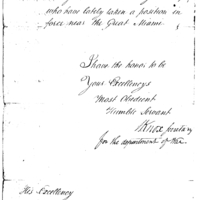 who have lately taken a position in
force near the Great Miami
I have the honor to be
Your Excellency's
Most Obedient
Humble Servant
HKnox Secretary
for the department of War.
His Excellency